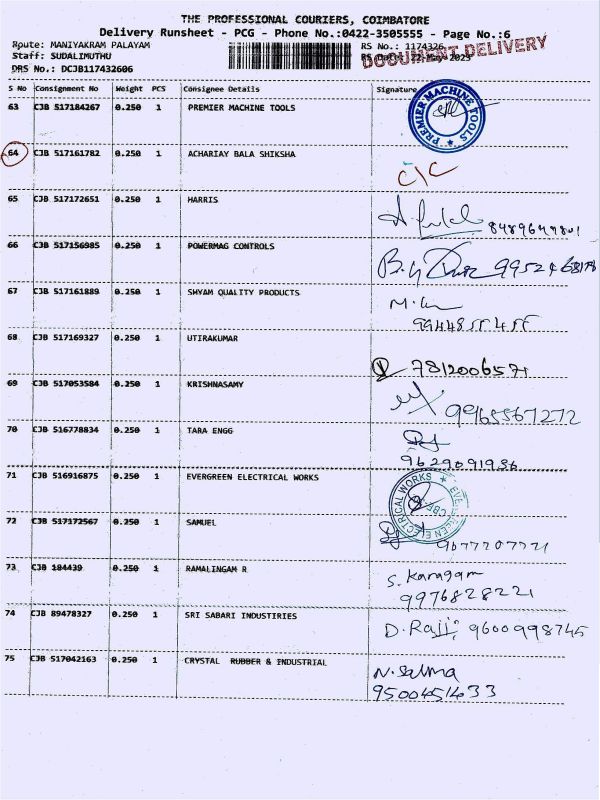 THE PROFESSIONAL COURIERS, COIMBATORE
Delivery Runsheet - PCG - Phone No.:0422-3505555 - Page No.:6
Route: MANIYAKRAM PALAYAM RS No.: 1174326
DOCUMENT DELIVERY
Staff: SUDALIMUTHU RS Date: 22-May-2023
DRS No.: DCJB117432606
S No Consignment No Weight PCS Consignee Details Signature
63 CJB 517184267 0.250 1 PREMIER MACHINE TOOLS
PREMIER MACHINE TOOLS
64 CJB 517161782 0.250 1 ACHARIAY BALA SHIKSHA
C/C
65 CJB 517172651 0.250 1 HARRIS
66 CJB 517156985 0.250 1 POWERMAG CONTROLS
67 CJB 517161889 0.250 1 SHYAM QUALITY PRODUCTS
68 CJB 517169327 0.250 1 UTIRAKUMAR
7812006571
69 CJB 517053584 0.250 1 KRISHNASAMY
9965567272
70 CJB 516778834 0.250 1 TARA ENGG
9629091936
71 CJB 516916875 0.250 1 EVERGREEN ELECTRICAL WORKS
EVERGREEN ELECTRICAL WORKS
72 CJB 517172567 0.250 1 SAMUEL
9677207721
73 CJB 184439 0.250 1 RAMALINGAM R
S. Karagam
9976828221
74 CJB 89478327 0.250 1 SRI SABARI INDUSTIRIES
D. Raji 9600998745
75 CJB 517042163 0.250 1 CRYSTAL RUBBER & INDUSTRIAL
N. Salma
9500451433